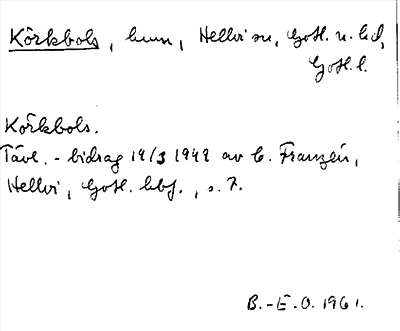 Körkbols, hmn, Hellvi sn, Gotl. n. hd,
Gotl. l.
Körkbols.
Tävl.-bidrag 14/3 1949 av C. Franzén,
Hellvi, Gotl. hbf., s. 7.
B.-E. O. 1961.